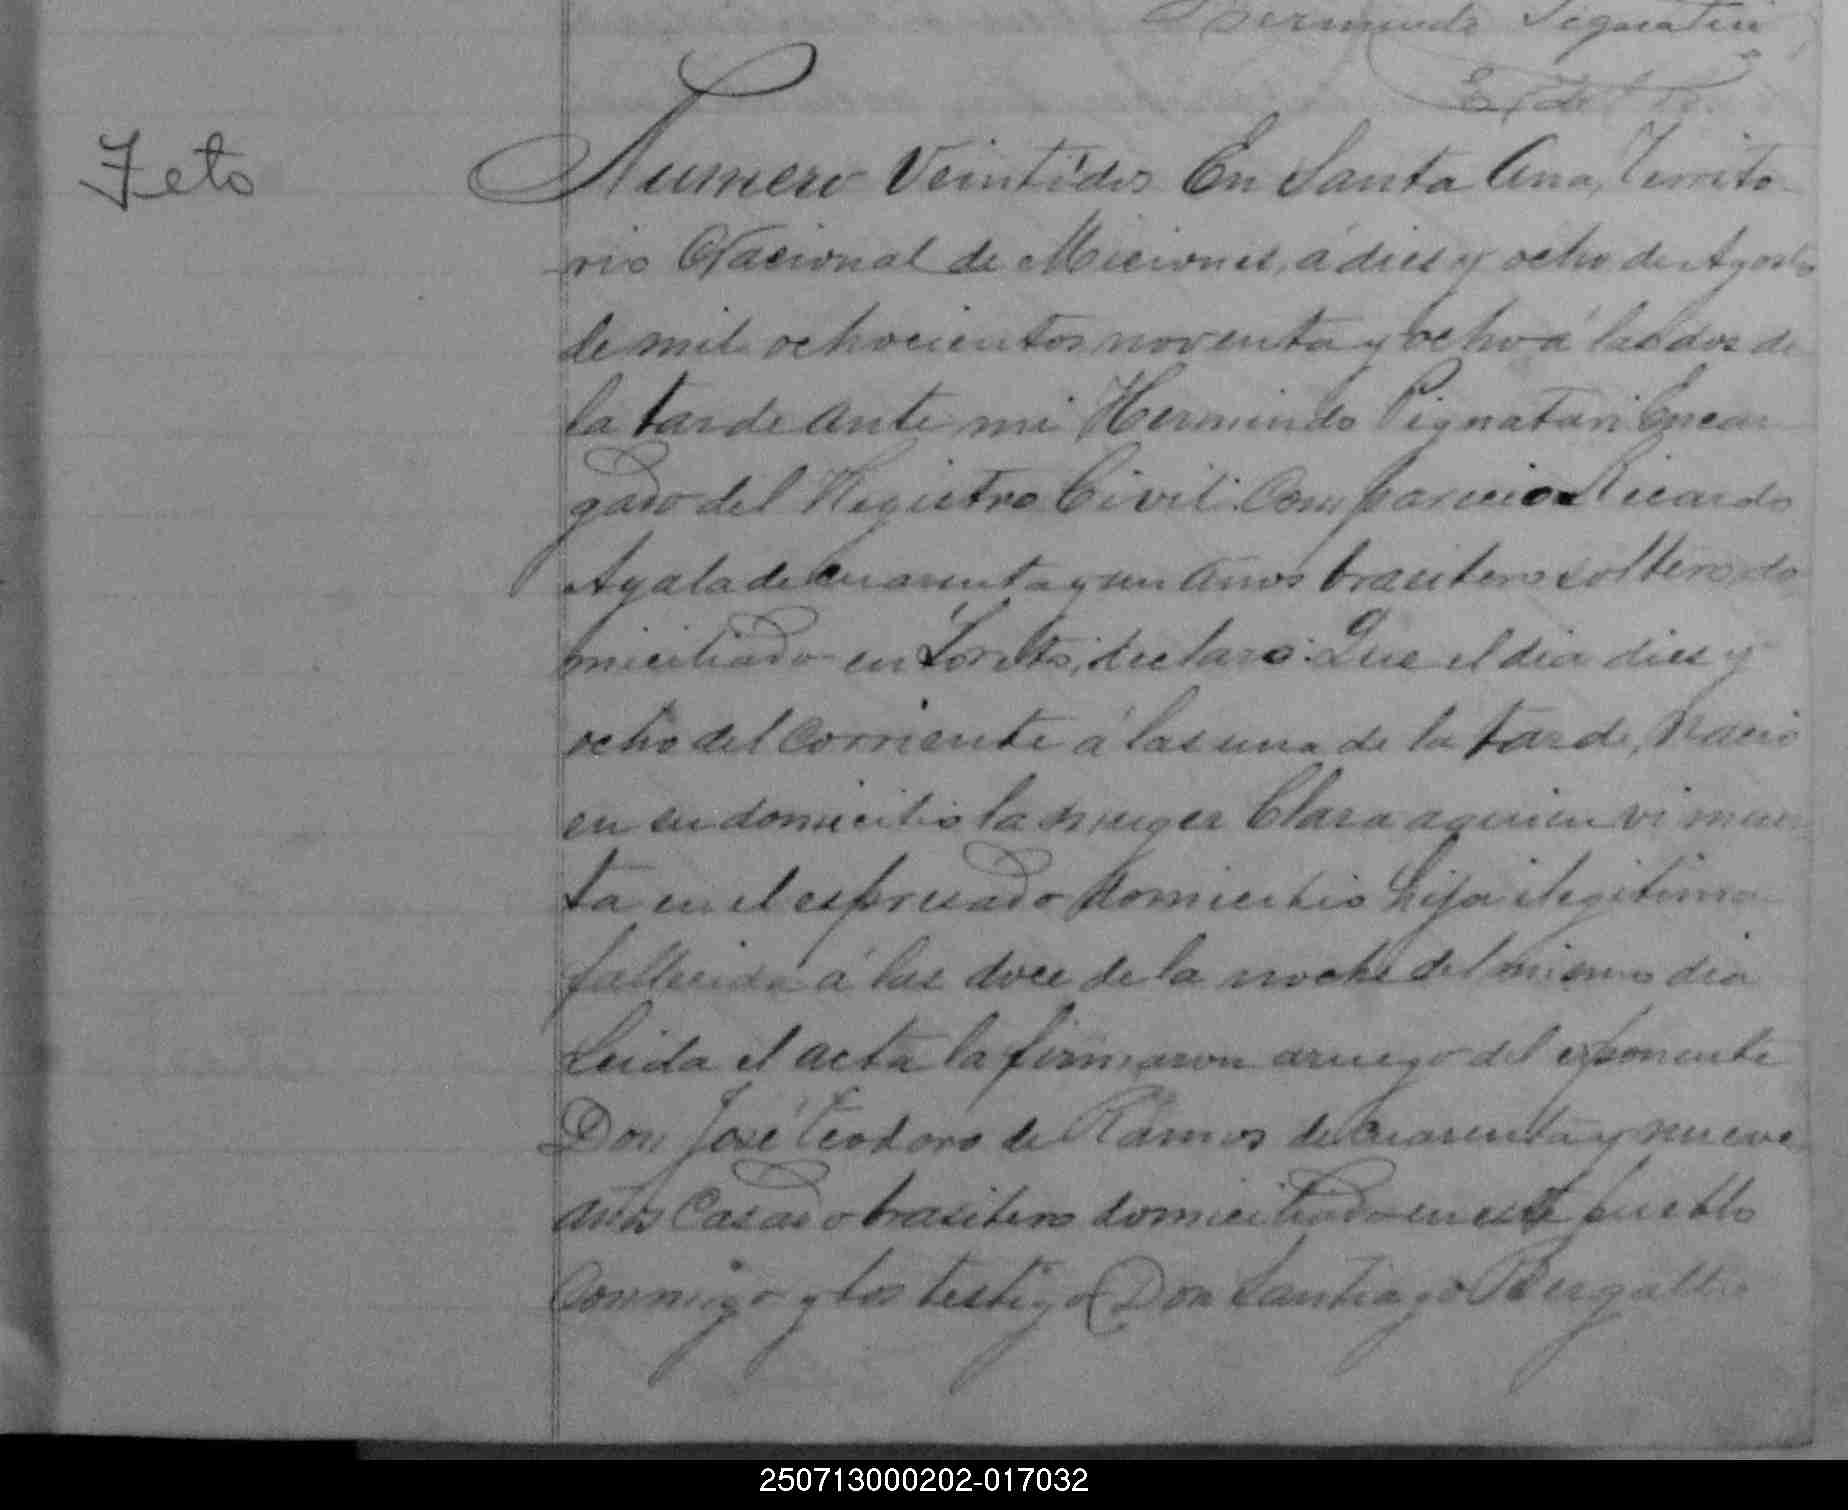 Hermindo Pignatari
E. del R.
Feto
Numero Veintidos En Santa Ana, Territo-
rio Nacional de Miciones, á dies y ocho de Agosto
de mil ochocientos noventa y ocho á las dos de
la tarde ante mi Hermindo Pignatari Encar
gado del Registro Civil. Comparecio Ricardo
Ayala de cuarenta y un años brasilero soltero do
miciliado en Loreto, declaró: Que el dia dies y
ocho del corriente á las una de la tarde, Nacio
en su domicilio la muger Clara aquien vi muer
ta en el espresado domicilio hija ilegitima
fallecida á las doce de la noche del mismo dia
Leida el acta la firmaron aruego del esponente
Don José Teodoro de Ramos de cuarenta y nueve
años Casado brasilero domiciliado en este pueblo
Conmigo y los testigos Don Santiago Bergallo
250713000202-017032